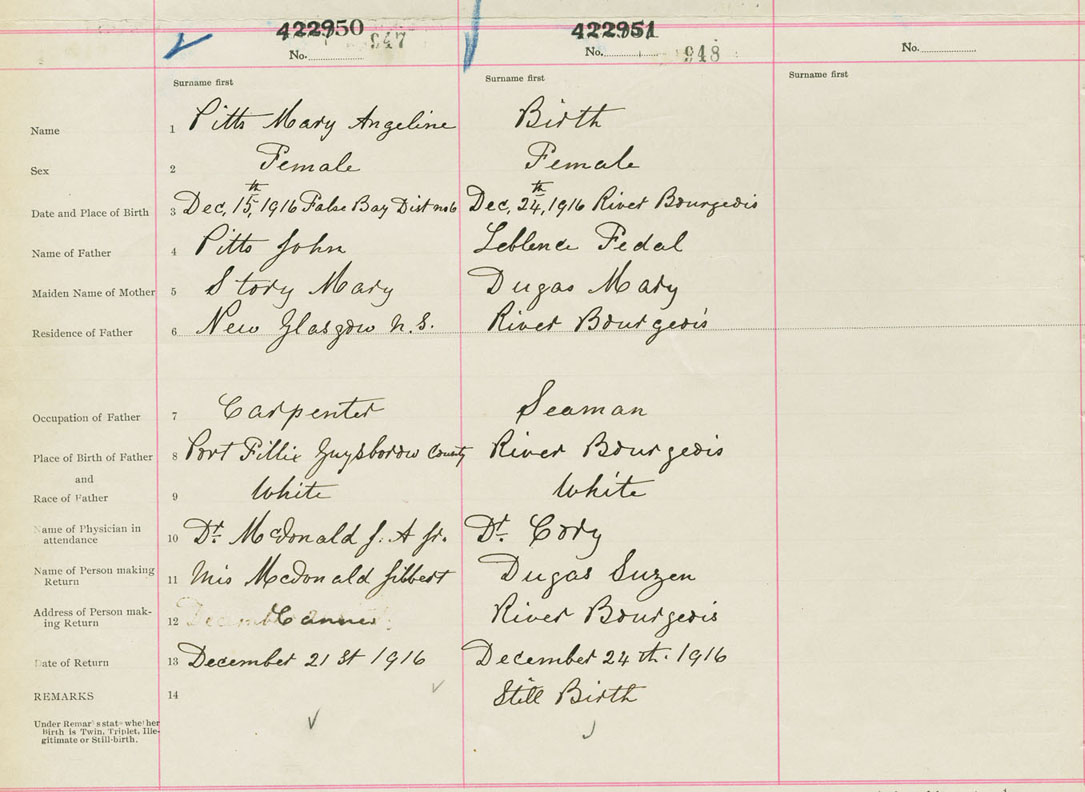 422950 422951
947 948
No. No. No.
Surname first Surname first Surname first
Name 1 Pitts Mary Angeline Birth
Sex 2 Female Female
Date and Place of Birth 3 Dec, 15th, 1916 False Bay Dist no 6 Dec, 24th, 1916 River Bourgeois
Name of Father 4 Pitts John Leblenc Fedal
Maiden Name of Mother 5 Story Mary Dugas Mary
Residence of Father 6 New Glasgow N.S. River Bourgeois
Occupation of Father 7 Carpenter Seaman
Place of Birth of Father 8 Port Fillix Guysborow County River Bourgeois
and
Race of Father 9 White White
Name of Physician in
attendance 10 Dr. McDonald J. A Jr. Dr. Cory
Name of Person making
Return 11 Mis Mcdonald Jibbert Dugas Suzen
Address of Person mak-
ing Return 12 River Bourgeois
Date of Return 13 December 21 St 1916 December 24 th. 1916
REMARKS 14 Still Birth
Under Remarks state whether
Birth is Twin, Triplet, Ille-
gitimate or Still-birth.